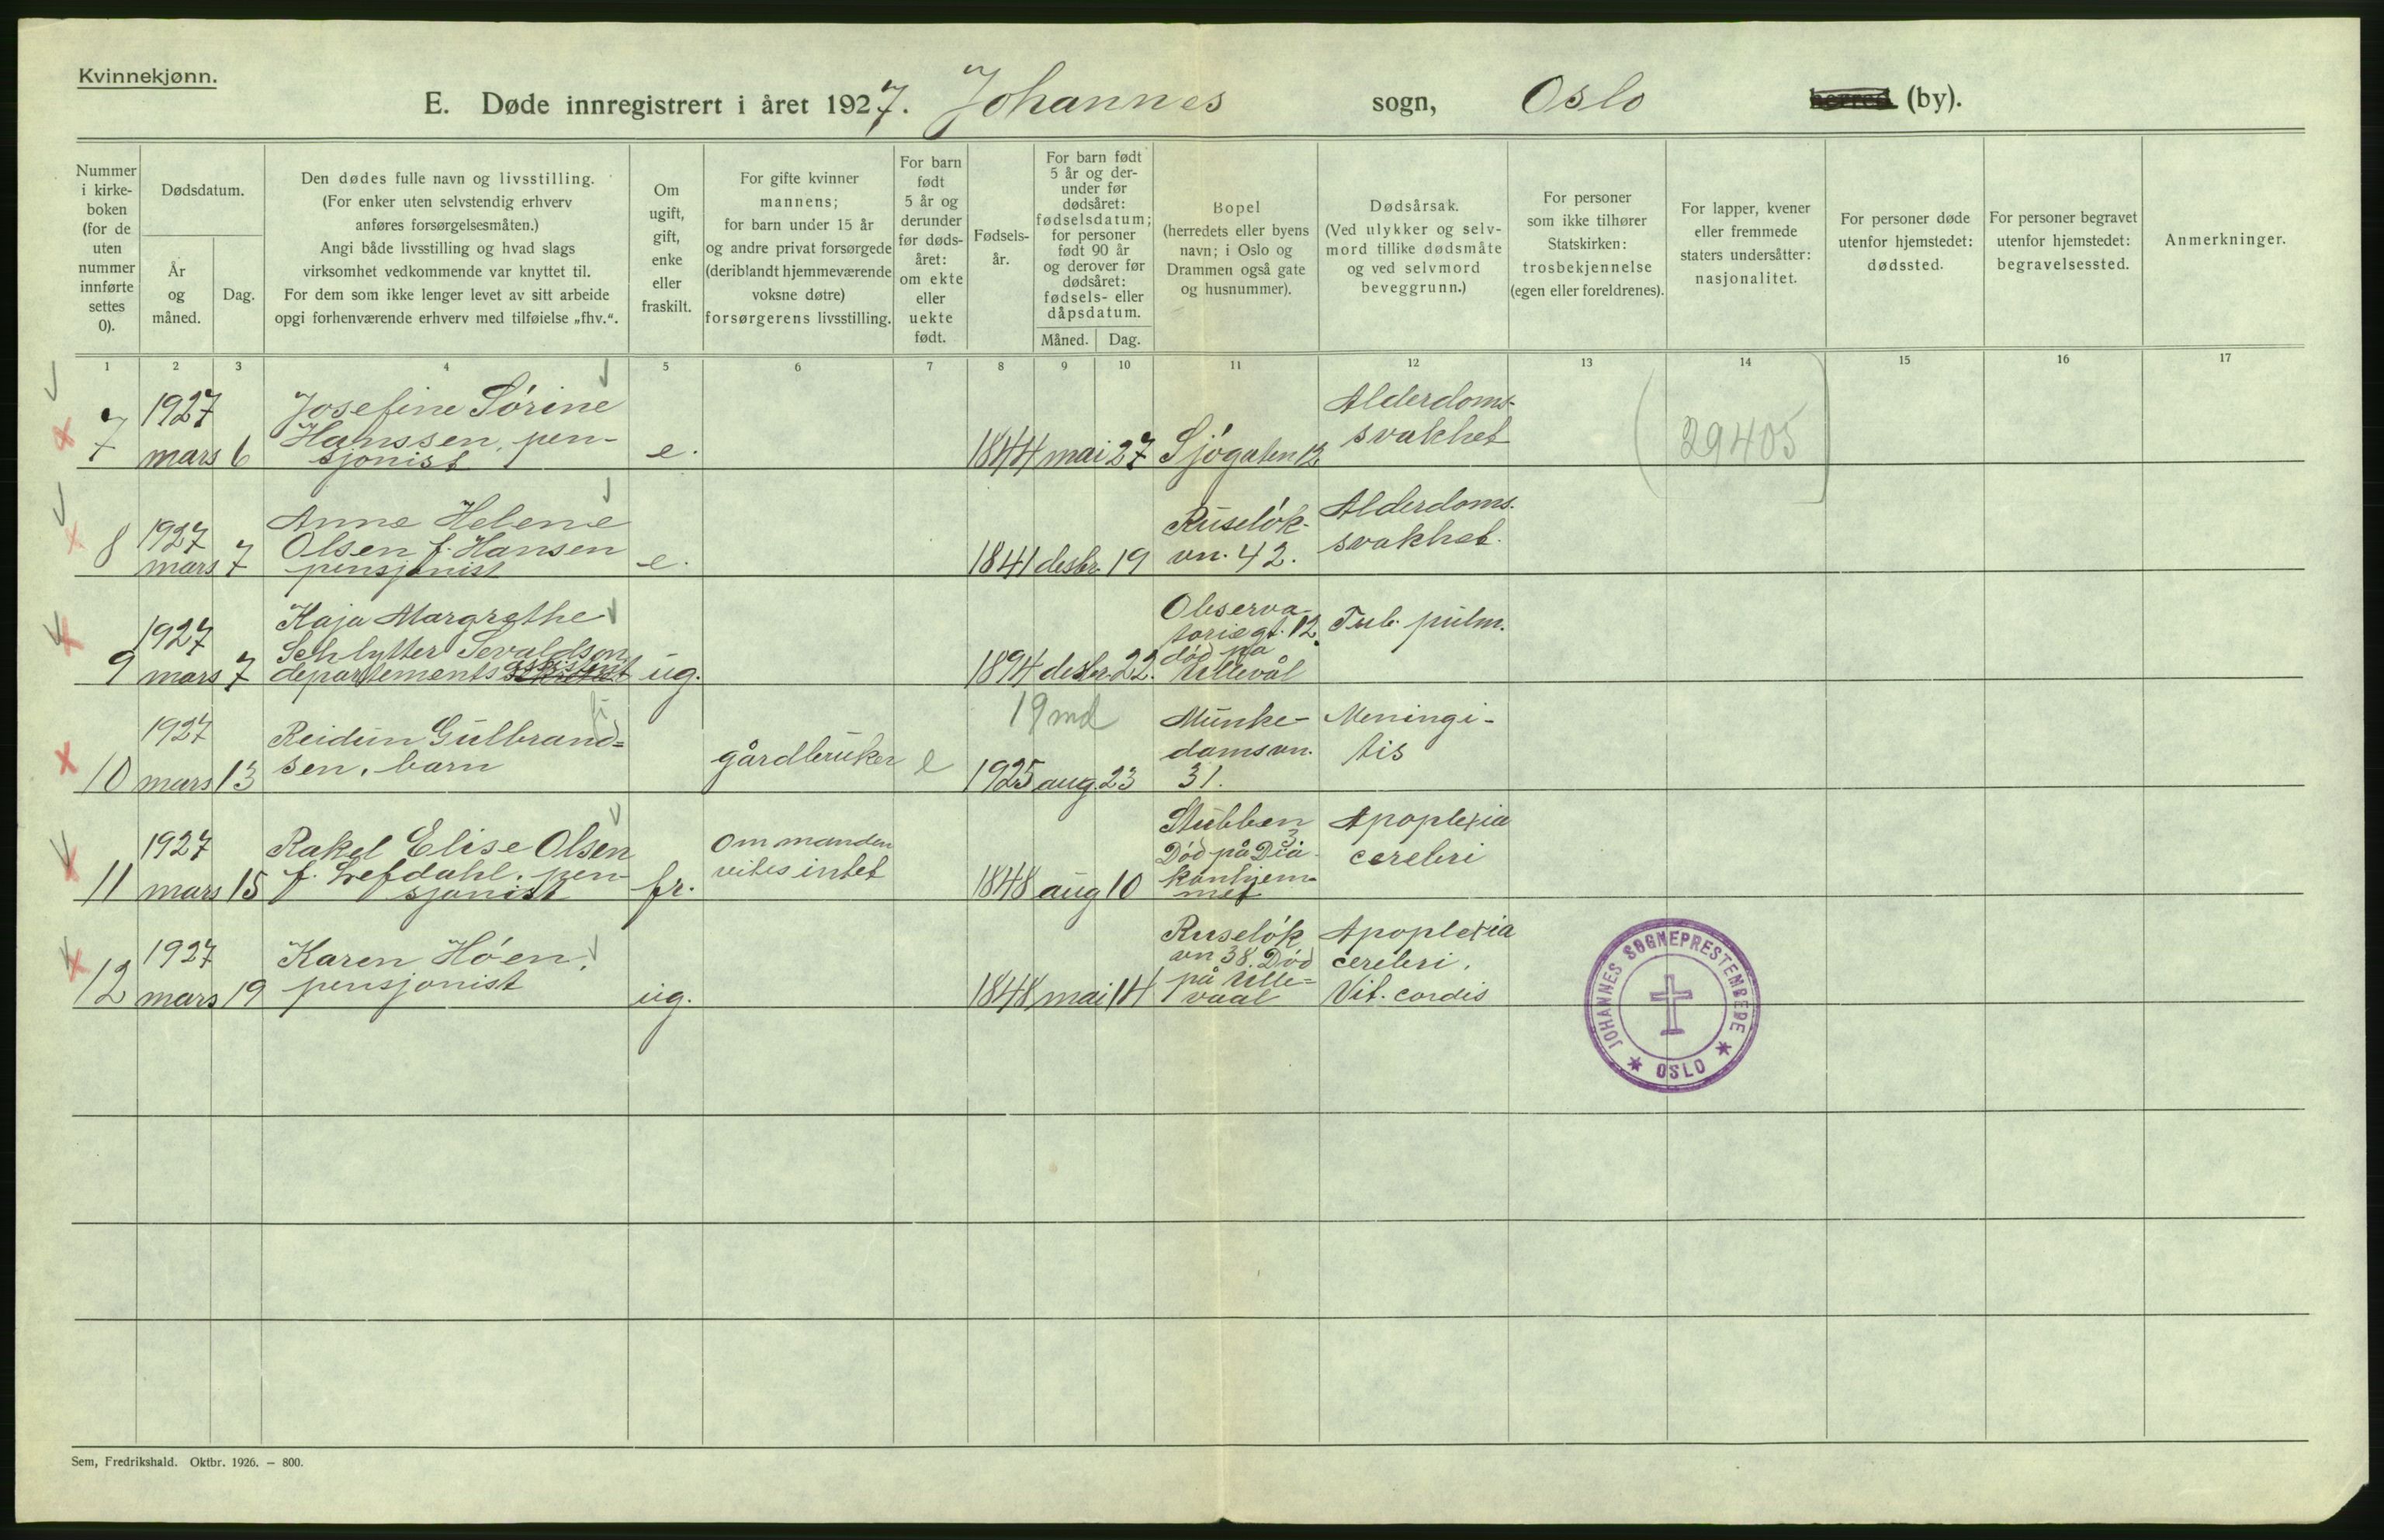 Kvinnekjønn.
E. Døde innregistrert i året 1927. Johannes sogn, Oslo herred (by).
Nummer
i kirke-
boken
(for de
uten
nummer
innførte
settes
0).
Dødsdatum.
År
og
måned.
Dag.
Den dødes fulle navn og livsstilling.
(For enker uten selvstendig erhverv
anføres forsørgelsesmåten.)
Angi både livsstilling og hvad slags
virksomhet vedkommende var knyttet til.
For dem som ikke lenger levet av sitt arbeide
opgi forhenværende erhverv med tilføielse „fhv.“.
Om
ugift,
gift,
enke
eller
fraskilt.
For gifte kvinner
mannens;
for barn under 15 år
og andre privat forsørgede
(deriblandt hjemmeværende
voksne døtre)
forsørgerens livsstilling.
For barn
født
5 år og
derunder
før døds-
året:
om ekte
eller
uekte
født.
Fødsels-
år.
For barn født
5 år og der-
under før
dødsåret:
fødselsdatum;
for personer
født 90 år
og derover før
dødsåret:
fødsels- eller
dåpsdatum.
Måned.
Dag.
Bopel
(herredets eller byens
navn; i Oslo og
Drammen også gate
og husnummer).
Dødsårsak.
(Ved ulykker og selv-
mord tillike dødsmåte
og ved selvmord
beveggrunn.)
For personer
som ikke tilhører
Statskirken:
trosbekjennelse
(egen eller foreldrenes).
For lapper, kvener
eller fremmede
staters undersåtter:
nasjonalitet.
For personer døde
utenfor hjemstedet:
dødssted.
For personer begravet
utenfor hjemstedet:
begravelsessted.
Anmerkninger.
1 2 3 4 5 6 7 8 9 10 11 12 13 14 15 16 17
7
1927
mars 6
Josefine Sörine
Hanssen, pen-
sjonist
e.
1844 mai 27
Sjögaten 12
Alderdoms-
svakhet
29405
8
1927
mars 7
Anne Helene
Olsen f. Hansen
pensjonist
e.
1841 desbr. 19
Ruselök-
vn. 42.
Alderdoms-
svakhet.
9
1927
mars 7
Kaja Margrethe
Schlytter Sevaldson
departements assistent
ug.
1894 desbr. 22.
Observa-
toriegt. 12
død på
Ullevål
Tub. pulm.
10
1927
mars 13
Reidun Gulbrand=
sen, barn
gårdbruker
e
19 md
1925 aug. 23
Munke-
damsvn.
31.
Meningi-
tis
11
1927
mars 15
Rakel Elise Olsen
f. Lefdahl, pen-
sjonist
fr.
Om manden
vites intet
1848 aug 10
Stubben
3
Död på Dia-
konhjem-
met
Apoplexia
cerebri
12
1927
mars 19
Karen Höen,
pensjonist
ug.
1848 mai 14
Ruselök
vn 38. Död
på Ulle=
vaal
Apoplexia
cerebri,
Vit. cordis
JOHANNES SOGNEPRESTEMBEDE
OSLO
Sem, Fredrikshald. Oktbr. 1926. — 800.